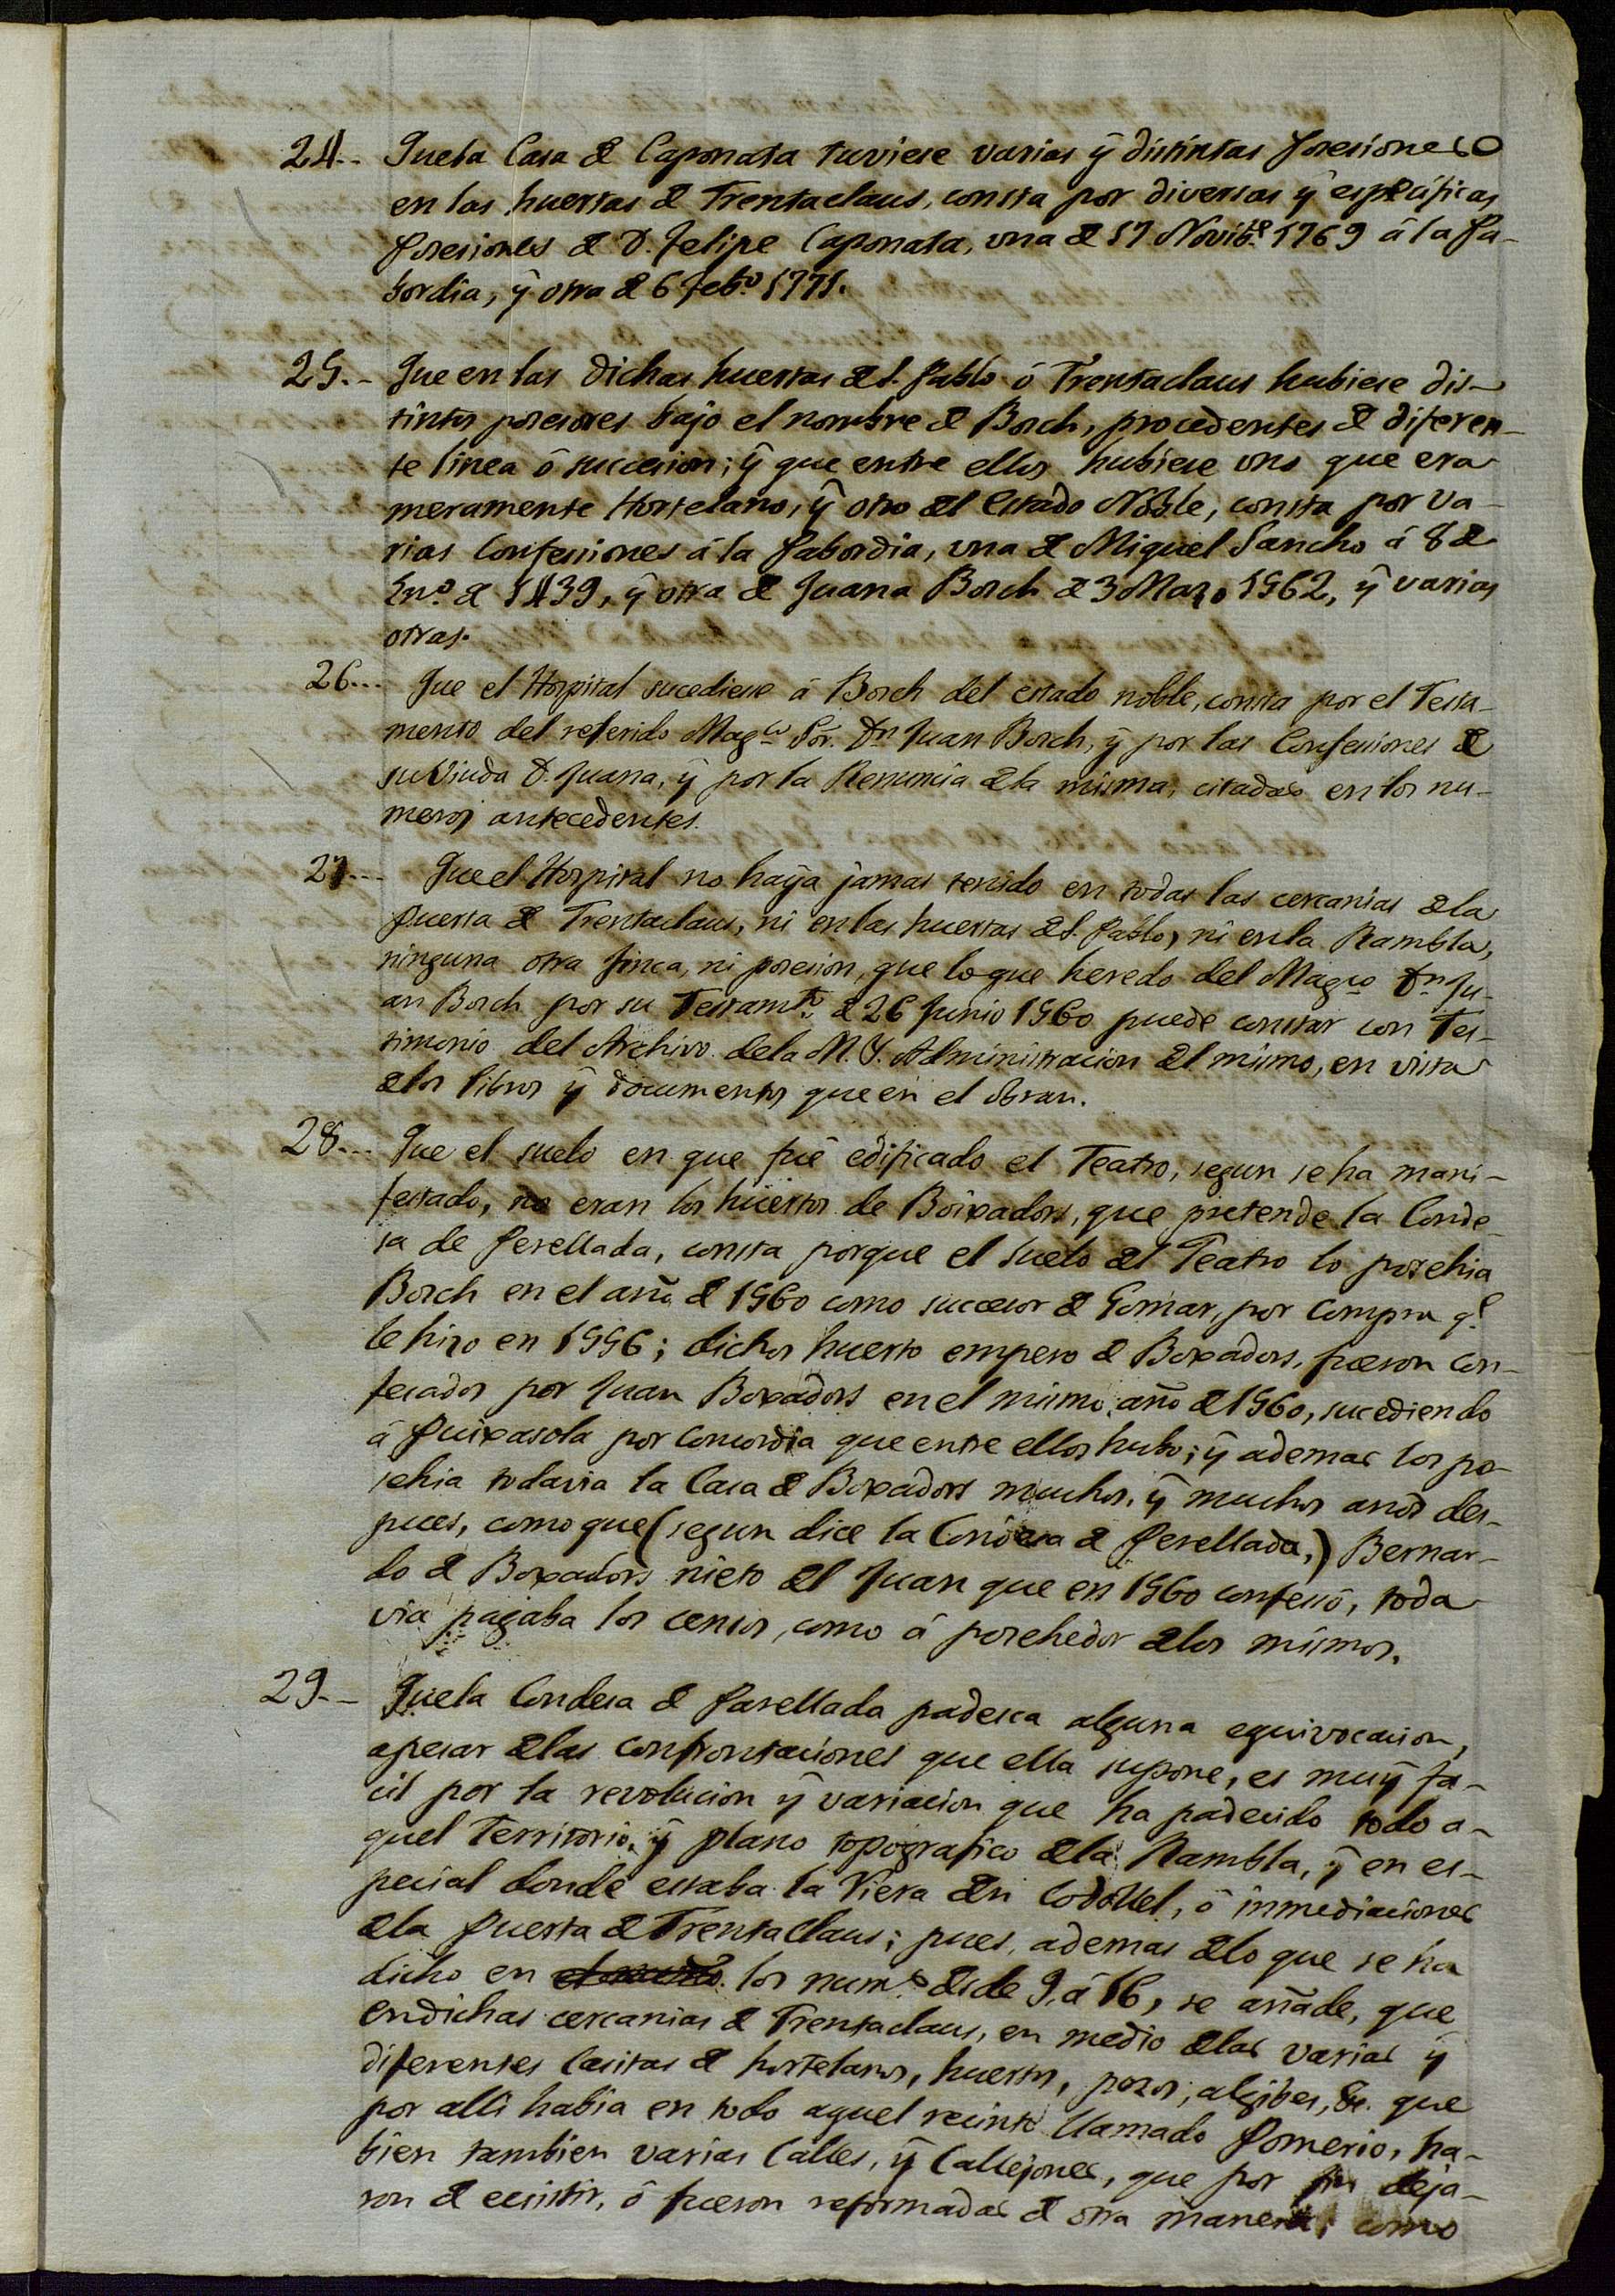 24.. Que la Casa de Caponata tuviese varias ÿ distintas Posesiones
en las huertas de Trentaclaus, consta por diversas ÿ especificas
Posesiones de D. Felipe Caponata, una de 17 Novibe. 1769 á la Pa-
bordia, ÿ otra de 6 Febo. 1771.
25.- Que en las dichas huertas de S. Pablo ó Trentaclaus hubiese dis-
tintos posesores bajo el nombre de Bosch, procedentes de diferen-
te linea ó succesion; ÿ que entre ellos hubiese uno que era
meramente Hortelano, ÿ otro del Estado Noble, consta por va-
rias Confesiones á la Pabordia, una de Miguel Sancho á 8 de
Eno. de 1539, ÿ otra de Juana Bosch de 3 Mazo 1562, ÿ varias
otras.
26... Que el Hospital sucediese á Bosch del estado noble, consta por el Testa-
mento del referido Magco. Sor. Dn. Juan Bosch, ÿ por las Confesiones de
su Viuda D. Juana, ÿ por la Renuncia de la misma, citadas en los nu-
meros antecedentes.
27... Que el Hospital no haÿa jamas tenido en todas las cercanias de la
Puerta de Trentaclaus, ni en las huertas de S. Pablo, ni en la Rambla,
ninguna otra finca, ni posesion, que lo que heredo del Magco. Dn. Ju-
an Bosch por su Testamto. de 26 Junio 1560 puede constar con Tes-
timonio del Archivo de la M. Y. Administracion del mismo, en vista
de los libros ÿ documentos que en el obran.
28... Que el suelo en que fué edificado el Teatro, segun se ha mani-
festado, no eran los huertos de Boixadors, que pretende la Conde-
sa de Perellada, consta porque el suelo del Teatro lo posehia
Bosch en el año de 1560 como succesor de Gomar, por compra qe.
le hizo en 1556; dichos huerto empero de Boxadors, fueron con-
fesados por Juan Boxadors en el mismo año de 1560, sucediendo
á Puixasola por Concordia que entre ellos hubo; ÿ ademas los po-
sehia todavia la Casa de Boxadors muchos, ÿ muchos años des-
pues, como que (segun dice la Condesa de Perellada,) Bernar-
do de Boxadors nieto del Juan que en 1560 confesó, toda
via pagaba los censos, como á posehedor de los mismos.
29.- Que la Condesa de Parellada padesca alguna equivocacion,
apesar de las confrontaciones que ella supone, es muÿ fa-
cil por la revolucion ÿ variacion que ha padecido todo a-
quel Territorio, ÿ plano topografico de la Rambla, ÿ en es-
pecial donde estaba la Riera den Codolell, ó inmediaciones
de la Puerta de Trentaclaus; pues, ademas de lo que se ha
dicho en los nums. desde 9, á 16, se añade, que
en dichas cercanias de Trentaclaus, en medio de las varias ÿ
diferentes Casitas de hortelanos, huertos, pozos, algibes, &c. que
por alli habia en todo aquel recinto llamado Pomerio, ha-
bien tambien varias Calles, ÿ Callejones, que por fin deja-
ron de ecsistir, ó fueron reformadas de otra manera; como